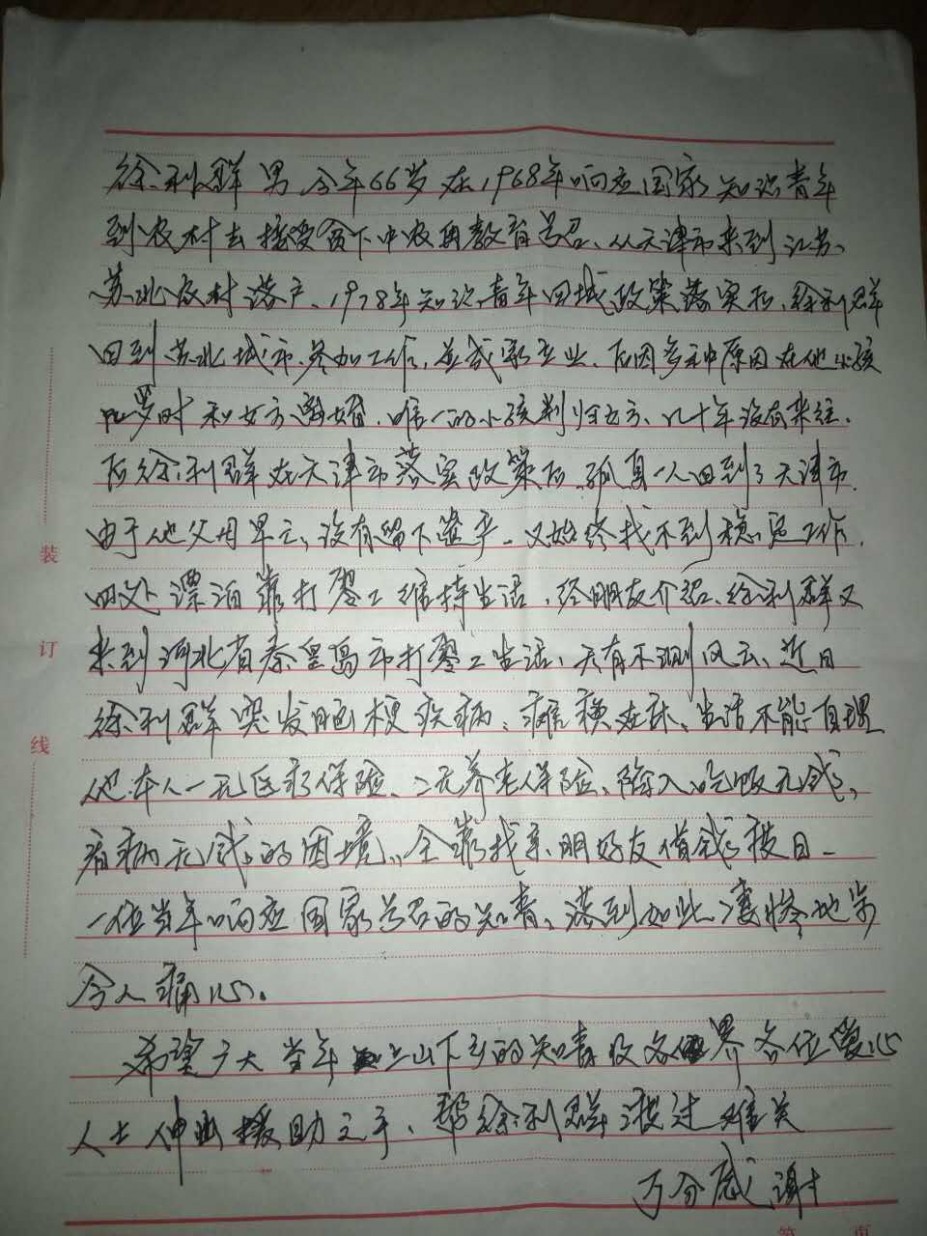 徐利群 男 今年66岁 在1968年响应国家知识青年
到农村去接受贫下中农再教育号召、从天津市来到江苏、
苏北农村落户、1978年知识青年回城政策落实后、徐利群
回到苏北城市.参加工作，并成家立业、后因多种原因在他小孩
四岁时和女方离婚.唯一的小孩判归女方、几十年没有来往.
后徐利群在天津市落实政策后.孤身一人回到了天津市.
由于他父母早亡、没有留下遗产、又始终找不到稳定工作.
四处漂泊靠打零工维持生活、经朋友介绍、徐利群又
来到河北省秦皇岛市打零工生活、天有不测风云、近日
徐利群突发脑梗疾病、瘫痪在床、生活不能自理
他本人一无医疗保险、二无养老保险、陷入吃饭无钱、
看病无钱的困境、全靠找亲朋好友借钱度日、
一位当年响应国家号召的知青、落到如此凄惨地步
令人痛心。
希望广大当年上山下乡的知青及各界各位爱心
人士伸出援助之手、帮徐利群渡过难关
万分感谢
装
订
线
第 页